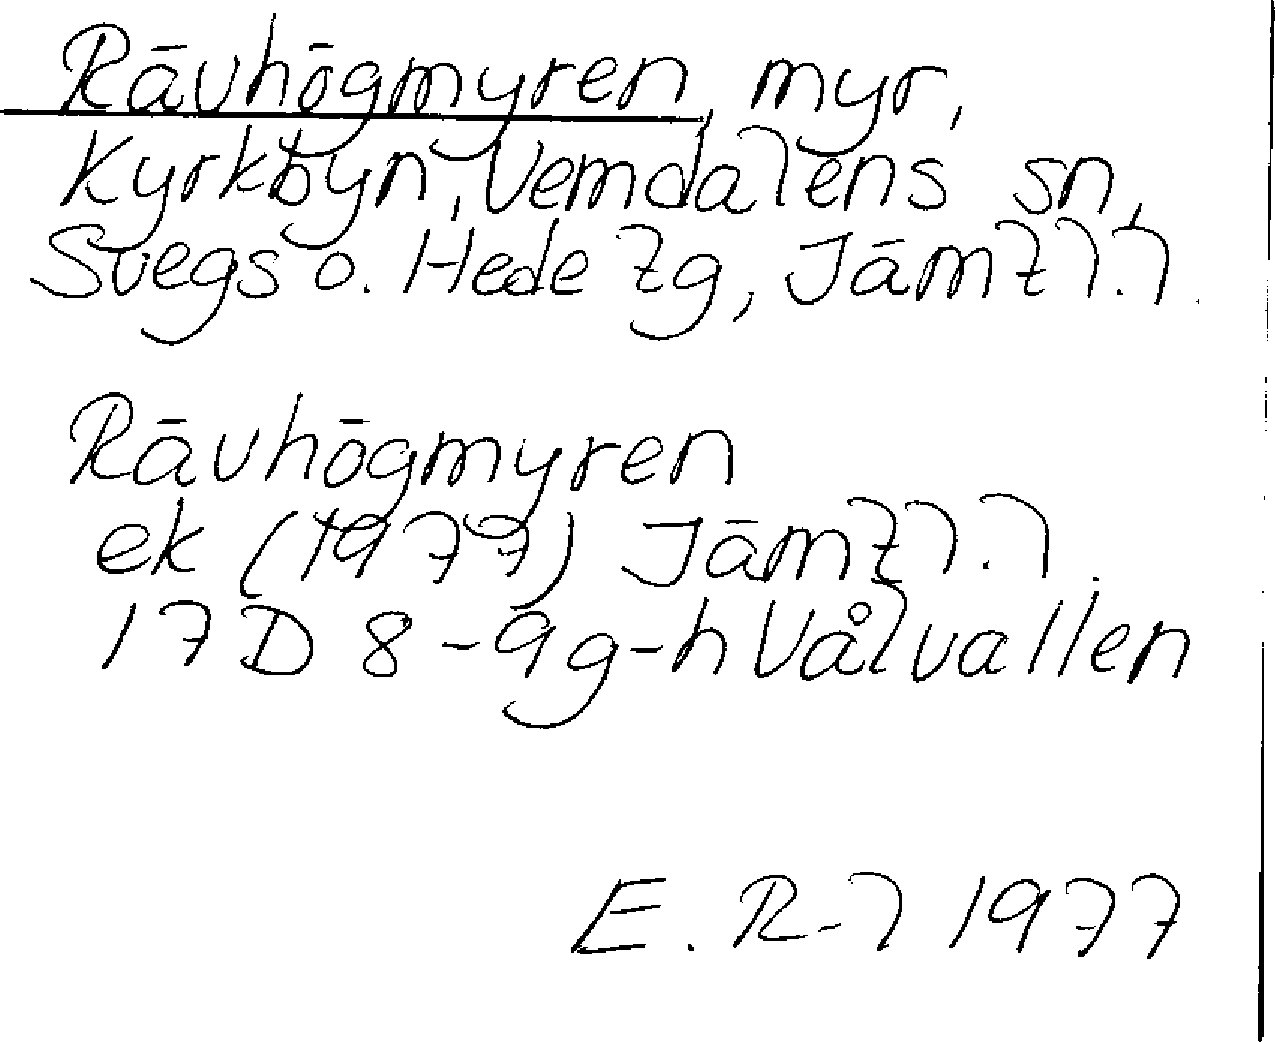 Rävhögmyren, myr,
Kyrkbyn, Vemdalens sn,
Svegs o. Hede tg, Jämtl.l.
Rävhögmyren
ek (1977) Jämtl.l.
17D 8-9g-h Vålvallen
E. R-l 1977